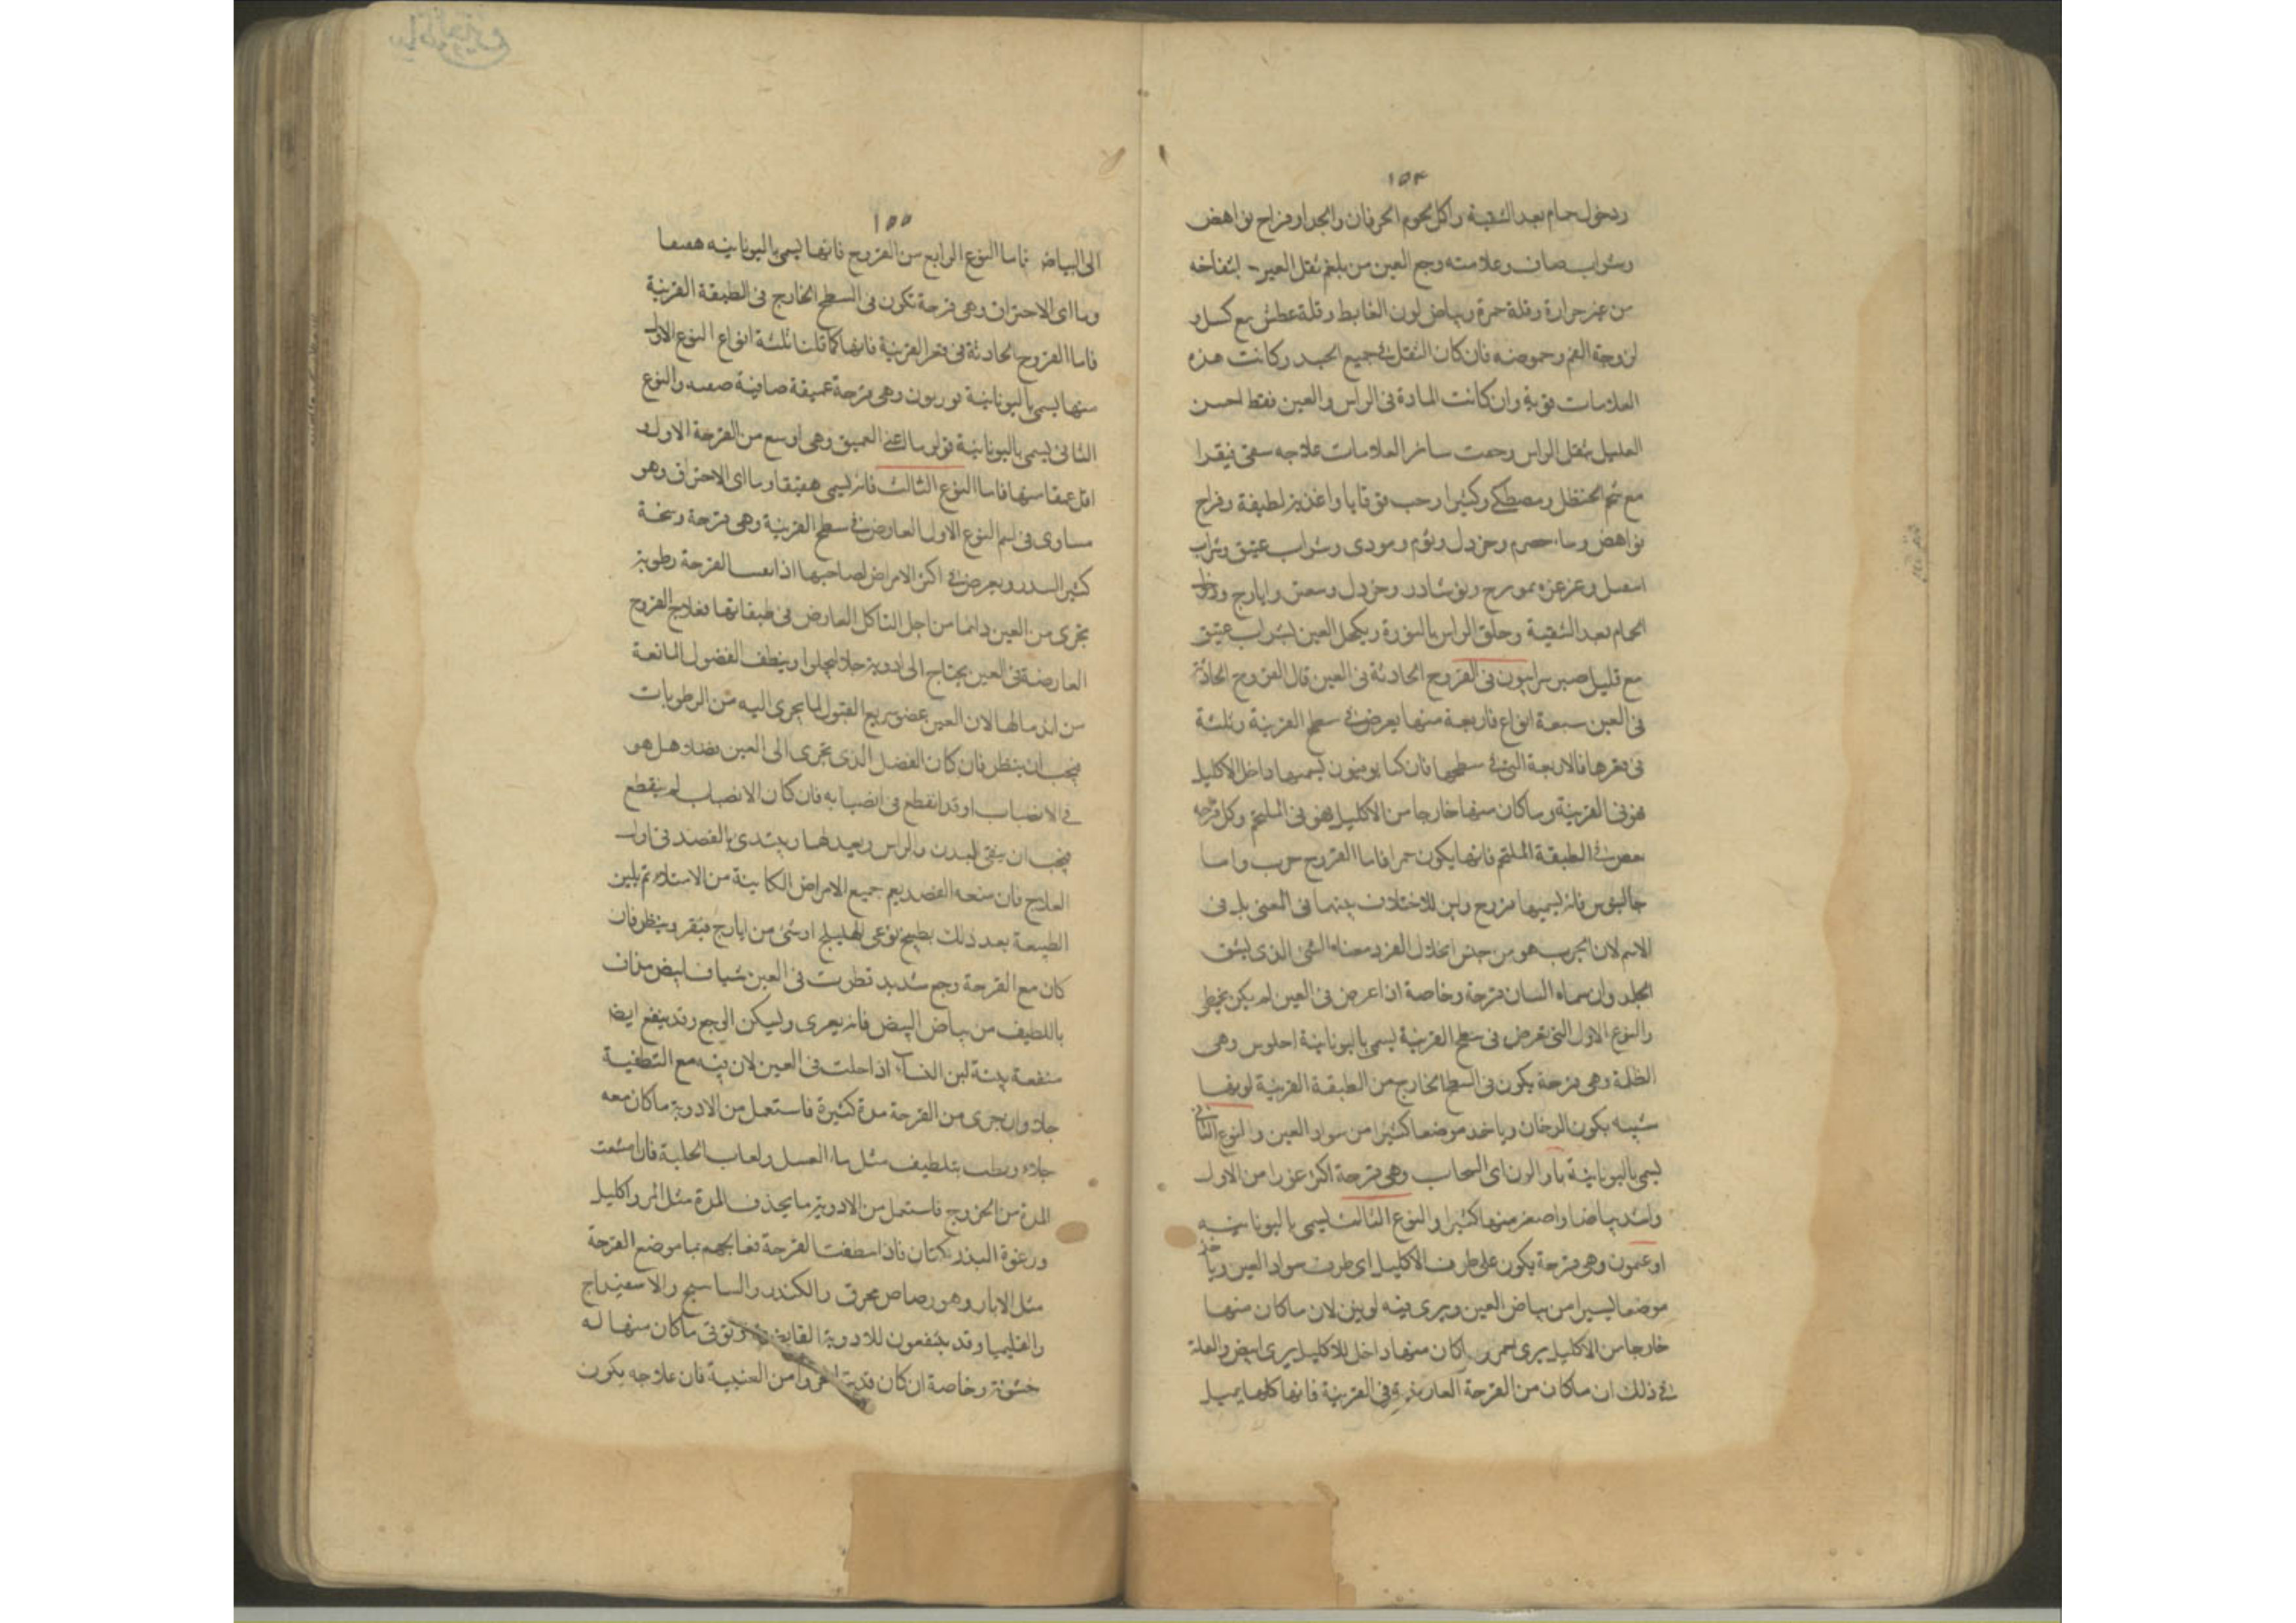 ١٥٤
ودخول حمام بعد التنقية واكل لحوم الخرفان والجدا وفراخ نواهض
وشراب صاف وعلامته وجع العين من بلغم ثقل العين انتفاخه
من غير حرارة وقلة حمرة وبياض لون الغايط وقلة عطش مع كسل و
لزوجة الفم وحموضه فان كان الثقل في جميع الجسد وكانت هذه
العلامات قوية وان كانت المادة في الراس والعين فقط احسن
العليل بثقل الراس وسائر العلامات علاجه سقى فيقرا
مع شحم الحنظل ومصطكي وكثيرا وحب قوقايا واغذية لطيفة وفراخ
نواهض وماء حصرم وخردل وثوم ومودى وشراب عتيق وشراب
العسل وغرغره بمويزج ونوشادر وخردل وسعتر وايارج ودخول
الحمام بعد التنقية وحلق الراس بالنورة ويكحل العين بشراب عتيق
مع قليل صبر سرابيون في القروح الحادثة في العين قال القروح الحادثة
في العين سبعة انواع فاربعة منها يعرض في سطح القرنية وثلثة
في قعرها فالاربعة التي في سطحها فان كنا يوميون يسميها داخل الاكليل
هو في القرنية وما كان منها خارجا من الاكليل هو في الملتحم وكل قرحه
في الطبقة الملتحم فانها يكون حمرا فاما القروح جرب واما
جالينوس فانه يسميها قروح وليس للاختلاف بينهما في المعنى بل في
الاسم لان الجرب هو من جنس انحلال الفرد معناه الشي الذي يشق
الجلد وان سماه انسان قرحة وخاصة اذا عرض في العين لم يكن يخطي
والنوع الاول التي تعرض في سطح القرنية يسمى باليونانية احلوس وهي
الظلة وهي قرحة يكون في السطح الخارج من الطبقة القرنية لونها
شبيه بكون الدخان وياخد موضعا كثيرا من سواد العين والنوع الثاني
يسمى باليونانية باوالون اى السحاب وهي قرحة اكثر غورا من الاول
واشد بياضا واصغر منها كثيرا والنوع الثالث يسمى باليونانيه
اوغمون وهي قرحة يكون على طرف الاكليل اى طرف سواد العين وياخذ
موضعا يسيرا من بياض العين ويرى فيه لونين لان ما كان منها
خارجا من الاكليل يرى احمر وما كان منها داخل للاكليل يرى ابيض والعلة
في ذلك ان ما كان من القرحة العارضة في القرنية فانها كلها يميل
١٥٥
الى البياض فاما النوع الرابع من القروح فانها يسمى باليونانيه
وما اى الاحتراق وهي قرحة تكون في السطح الخارج في الطبقة القرنية
فاما القروح الحادثة في قعر القرنية فانها كما قلنا ثلثة انواع النوع الاول
منها يسمى باليونانية بوريون وهي قرحة عميقة صافية والنوع
الثاني يسمى باليونانية قولوما يعني العميق وهي اوسع من القرحة الاول و
اقل عمقا منها فاما النوع الثالث فانه يسمى هفيقاوما اى الاحتراق وهو
مساوى في اسم النوع الاول العارض في سطح القرنية وهي قرحة وسخة
كثير السدد ويعرض في اكثر الامراض لصاحبها اذا القرحة رطوبة
تجرى من العين دائما من اجل التاكل العارض في طبقاتها فعلاج القروح
العارضة في العين يحتاج الى ادوية جلا ليجلوا وينظف الفضول المانعة
من اندمالها لان العين عضو سريع القبول لما يجرى اليه من الرطوبات
فيجب ان ينظر فان كان الفضل الذي يجرى الى العين هل هو
في الانصباب او قد انقطع في انصبابه فان كان الانصباب لم ينقطع
فيجب ان ينقى البدن والراس ويبتدى بالفصد في اول
العلاج فان منعه الفصد يعم جميع الامراض الكاينة من الامتلاء ثم يلين
الطبيعة بعد ذلك بطبيخ نوعى الهليلج او شئ من ايارج فيقرا وينظر فان
كان مع القرحة وجع شديد قطرت في العين شيافا ابيض مذاف
باللطيف من بياض البيض فانه يغرى وليسكن الوجع وقد ينفع ايضا
منفعة بينة لبن النساء اذا حلبت في العين لان فيه مع التطفية
جلا وان جرى من القرحة مدة كثيرة فاستعمل من الادوية ما كان معه
جلاء ورطب بتلطيف مثل ماء العسل ولعاب الحلبة فان امتنعت
المدة من الخروج فاستعمل من الادوية ما يجذف المدة مثل المر واكليل
ورغوة البذر كتان فاذا القرحة فعالجهم بما موضع القرحة
مثل الابار وهو رصاص محرق والكندر والساسج والاسفيداج
والقليميا وقد ينتفعون للادوية القابضة وتوقى ما كان منها له
خشونة وخاصة ان كان قديت من العنبية فان علاجه يكون